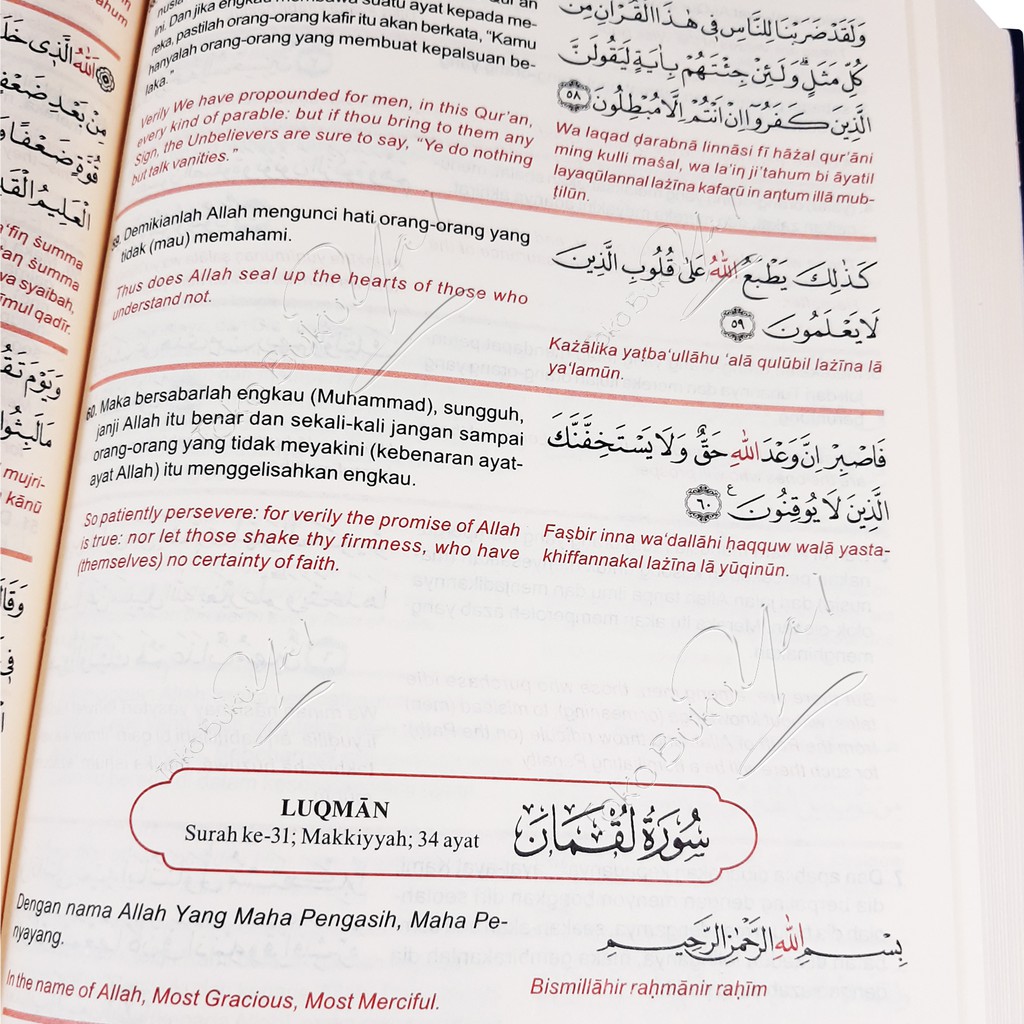 ini. Dan jika engkau membawa suatu ayat kepada me-
reka, pastilah orang-orang kafir itu akan berkata, “Kamu
hanyalah orang-orang yang membuat kepalsuan be-
laka.”
Verily We have propounded for men, in this Qur’an,
every kind of parable: but if thou bring to them any
Sign, the Unbelievers are sure to say, “Ye do nothing
but talk vanities.”
وَلَقَدْ ضَرَبْنَا لِلنَّاسِ فِي هٰذَا الْقُرْاٰنِ مِنْ
كُلِّ مَثَلٍۗ وَلَىِٕنْ جِئْتَهُمْ بِاٰيَةٍ لَّيَقُوْلَنَّ
الَّذِيْنَ كَفَرُوْٓا اِنْ اَنْتُمْ اِلَّا مُبْطِلُوْنَ ٥٨
Wa laqad ḍarabnā linnāsi fī hāżal qur’āni
ming kulli maṡal, wa la’in ji’tahum bi āyatil
layaqūlannal lażīna kafarū in aṇtum illā mub-
ṭilūn.
59. Demikianlah Allah mengunci hati orang-orang yang
tidak (mau) memahami.
Thus does Allah seal up the hearts of those who
understand not.
كَذٰلِكَ يَطْبَعُ اللّٰهُ عَلٰى قُلُوْبِ الَّذِيْنَ
لَا يَعْلَمُوْنَ ٥٩
Każālika yaṭba‘ullāhu ‘alā qulūbil lażīna lā
ya‘lamūn.
60. Maka bersabarlah engkau (Muhammad), sungguh,
janji Allah itu benar dan sekali-kali jangan sampai
orang-orang yang tidak meyakini (kebenaran ayat-
ayat Allah) itu menggelisahkan engkau.
So patiently persevere: for verily the promise of Allah
is true: nor let those shake thy firmness, who have
(themselves) no certainty of faith.
فَاصْبِرْ اِنَّ وَعْدَ اللّٰهِ حَقٌّ وَّلَا يَسْتَخِفَّنَّكَ
الَّذِيْنَ لَا يُوْقِنُوْنَ ࣖ ٦٠
Faṣbir inna wa‘dallāhi ḥaqquw walā yasta-
khiffannakal lażīna lā yūqinūn.
LUQMĀN
Surah ke-31; Makkiyyah; 34 ayat
سُوْرَةُ لُقْمَانَ
Dengan nama Allah Yang Maha Pengasih, Maha Pe-
nyayang.
In the name of Allah, Most Gracious, Most Merciful.
بِسْمِ اللّٰهِ الرَّحْمٰنِ الرَّحِيْمِ
Bismillāhir raḥmānir raḥīm